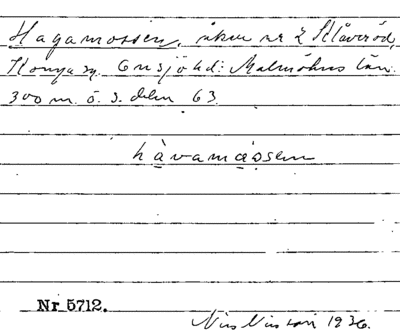 Hagamossen, åker nr 2 Klåveröd,
Konga sn. Onsjö hd: Malmöhus län.
300 m. ö. s. delen 63
håvamåosen
Nr 5712.
Nils Nilsson 1936.